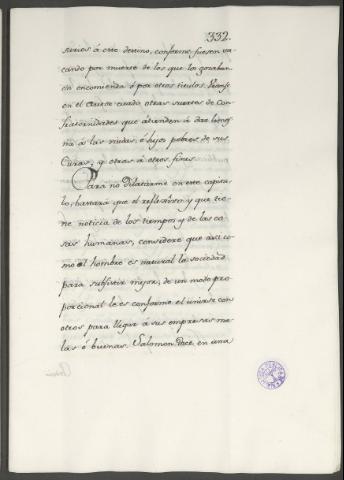 332.
sarios á este destino, conforme fuesen va-
cando por muerte de los que los gozaban
en encomienda ó por otros titulos.
en el otras suertes de Con-
fraternidades que atienden á dar limos-
na á las viudas, é hijos pobres de sus
Curas, y otras á otros fines.
Para no dilatarme en este capitu-
lo, bastará que el reflexivo y que tie-
ne noticia de los tiempos y de las co-
sas humanas, considere que asi co-
mo al hombre es natural la sociedad
para subsistir mejor, de un modo pro-
porcional le es conforme el unirse con
otros para llegar á sus empresas ma-
las ó buenas. Salomon dice, en una